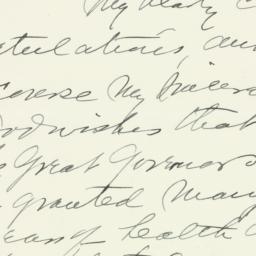 My hearty C
atulations, and
sincere
Goodwishes that
e Great Governor
granted Many
Years of health a